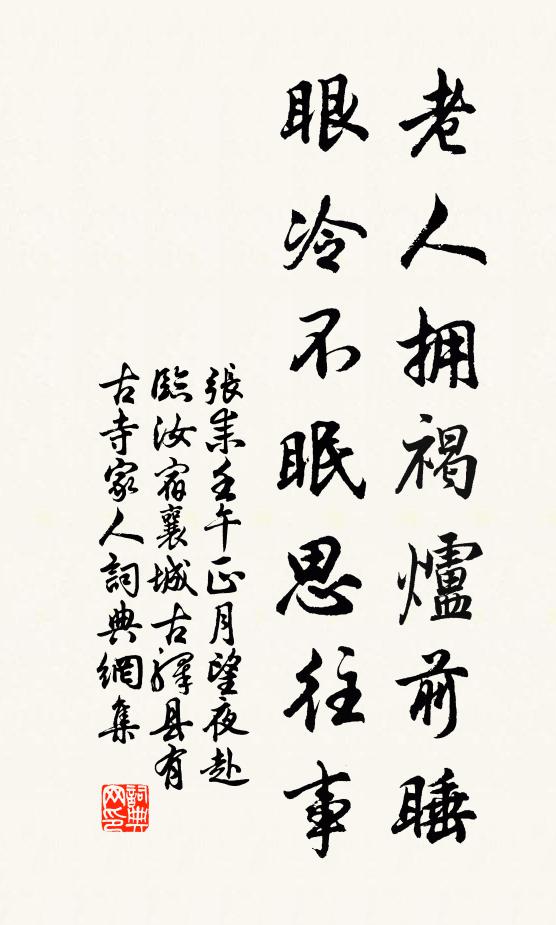 老人拥褐爐前睡
眼冷不眠思往事
張耒壬午正月望夜赴
臨汝宿襄城古驛县有
古寺家人詞典網集
詞典网印